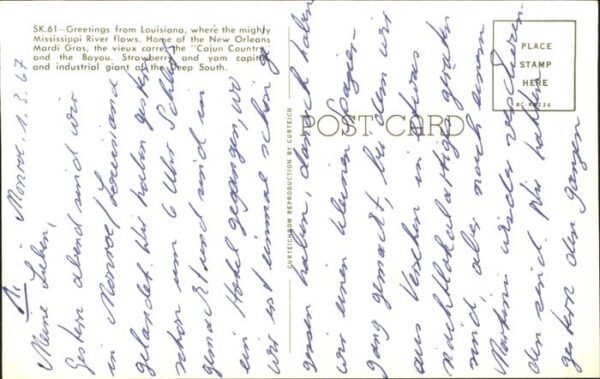 SK.61—Greetings from Louisiana, where the mighty
Mississippi River flows. Home of the New Orleans
Mardi Gras, the vieux carre, the "Cajun Country"
and the Bayou. Strawberry and yam capital
and industrial giant of the Deep South.
POST CARD
PLACE
STAMP
HERE
CURTEICHCOLOR REPRODUCTION BY CURTEICH
Monroe, 1.3.67
Meine Lieben,
Gestern abend sind wir
in Monroe/Louisiana
gelandet. Wir haben gestern
schon um 6 Uhr Schluß
gemacht und sind in
ein Hotel gegangen, wo
wir erst einmal schön ge-
gessen haben, danach haben
wir einen kleinen Spazier-
gang gemacht, bei dem wir
aus Versehen in etwas
nachtlokalartiges geraten
sind, aber nach einem
Martini wieder verschwan-
den sind. Wir hatten
gestern den ganzen